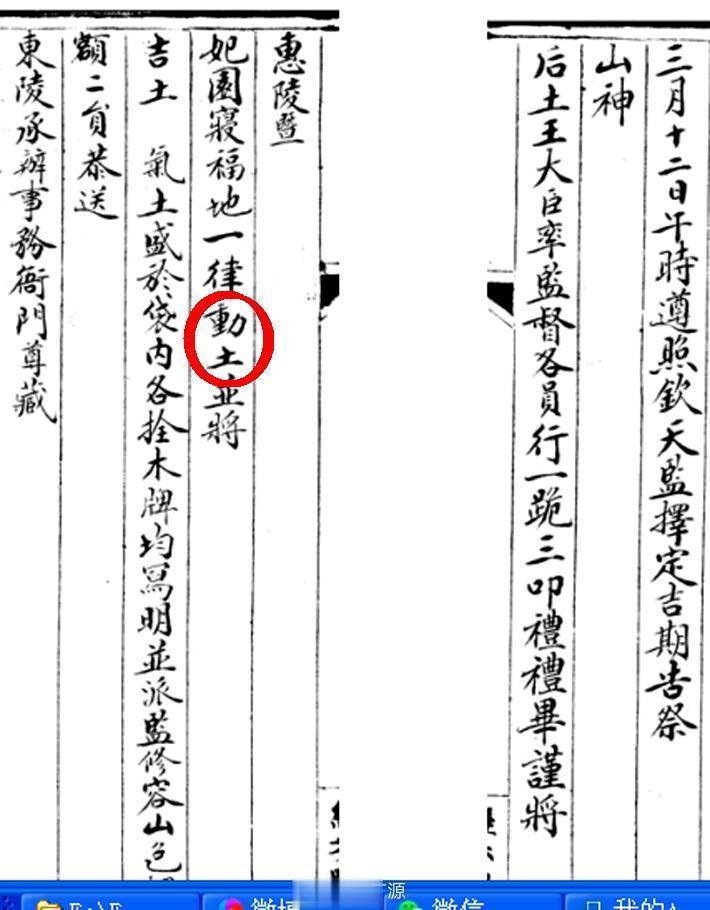 三月十二日午時遵照欽天監擇定吉期告祭
山神
后土王大臣率監督各員行一跪三叩禮禮畢謹將
惠陵暨
妃園寢福地一律動土並將
吉土 氣土盛於袋内各拴木牌均寫明並派監修容山色
額二員恭送
東陵承辦事務衙門尊藏
源
微信
我的